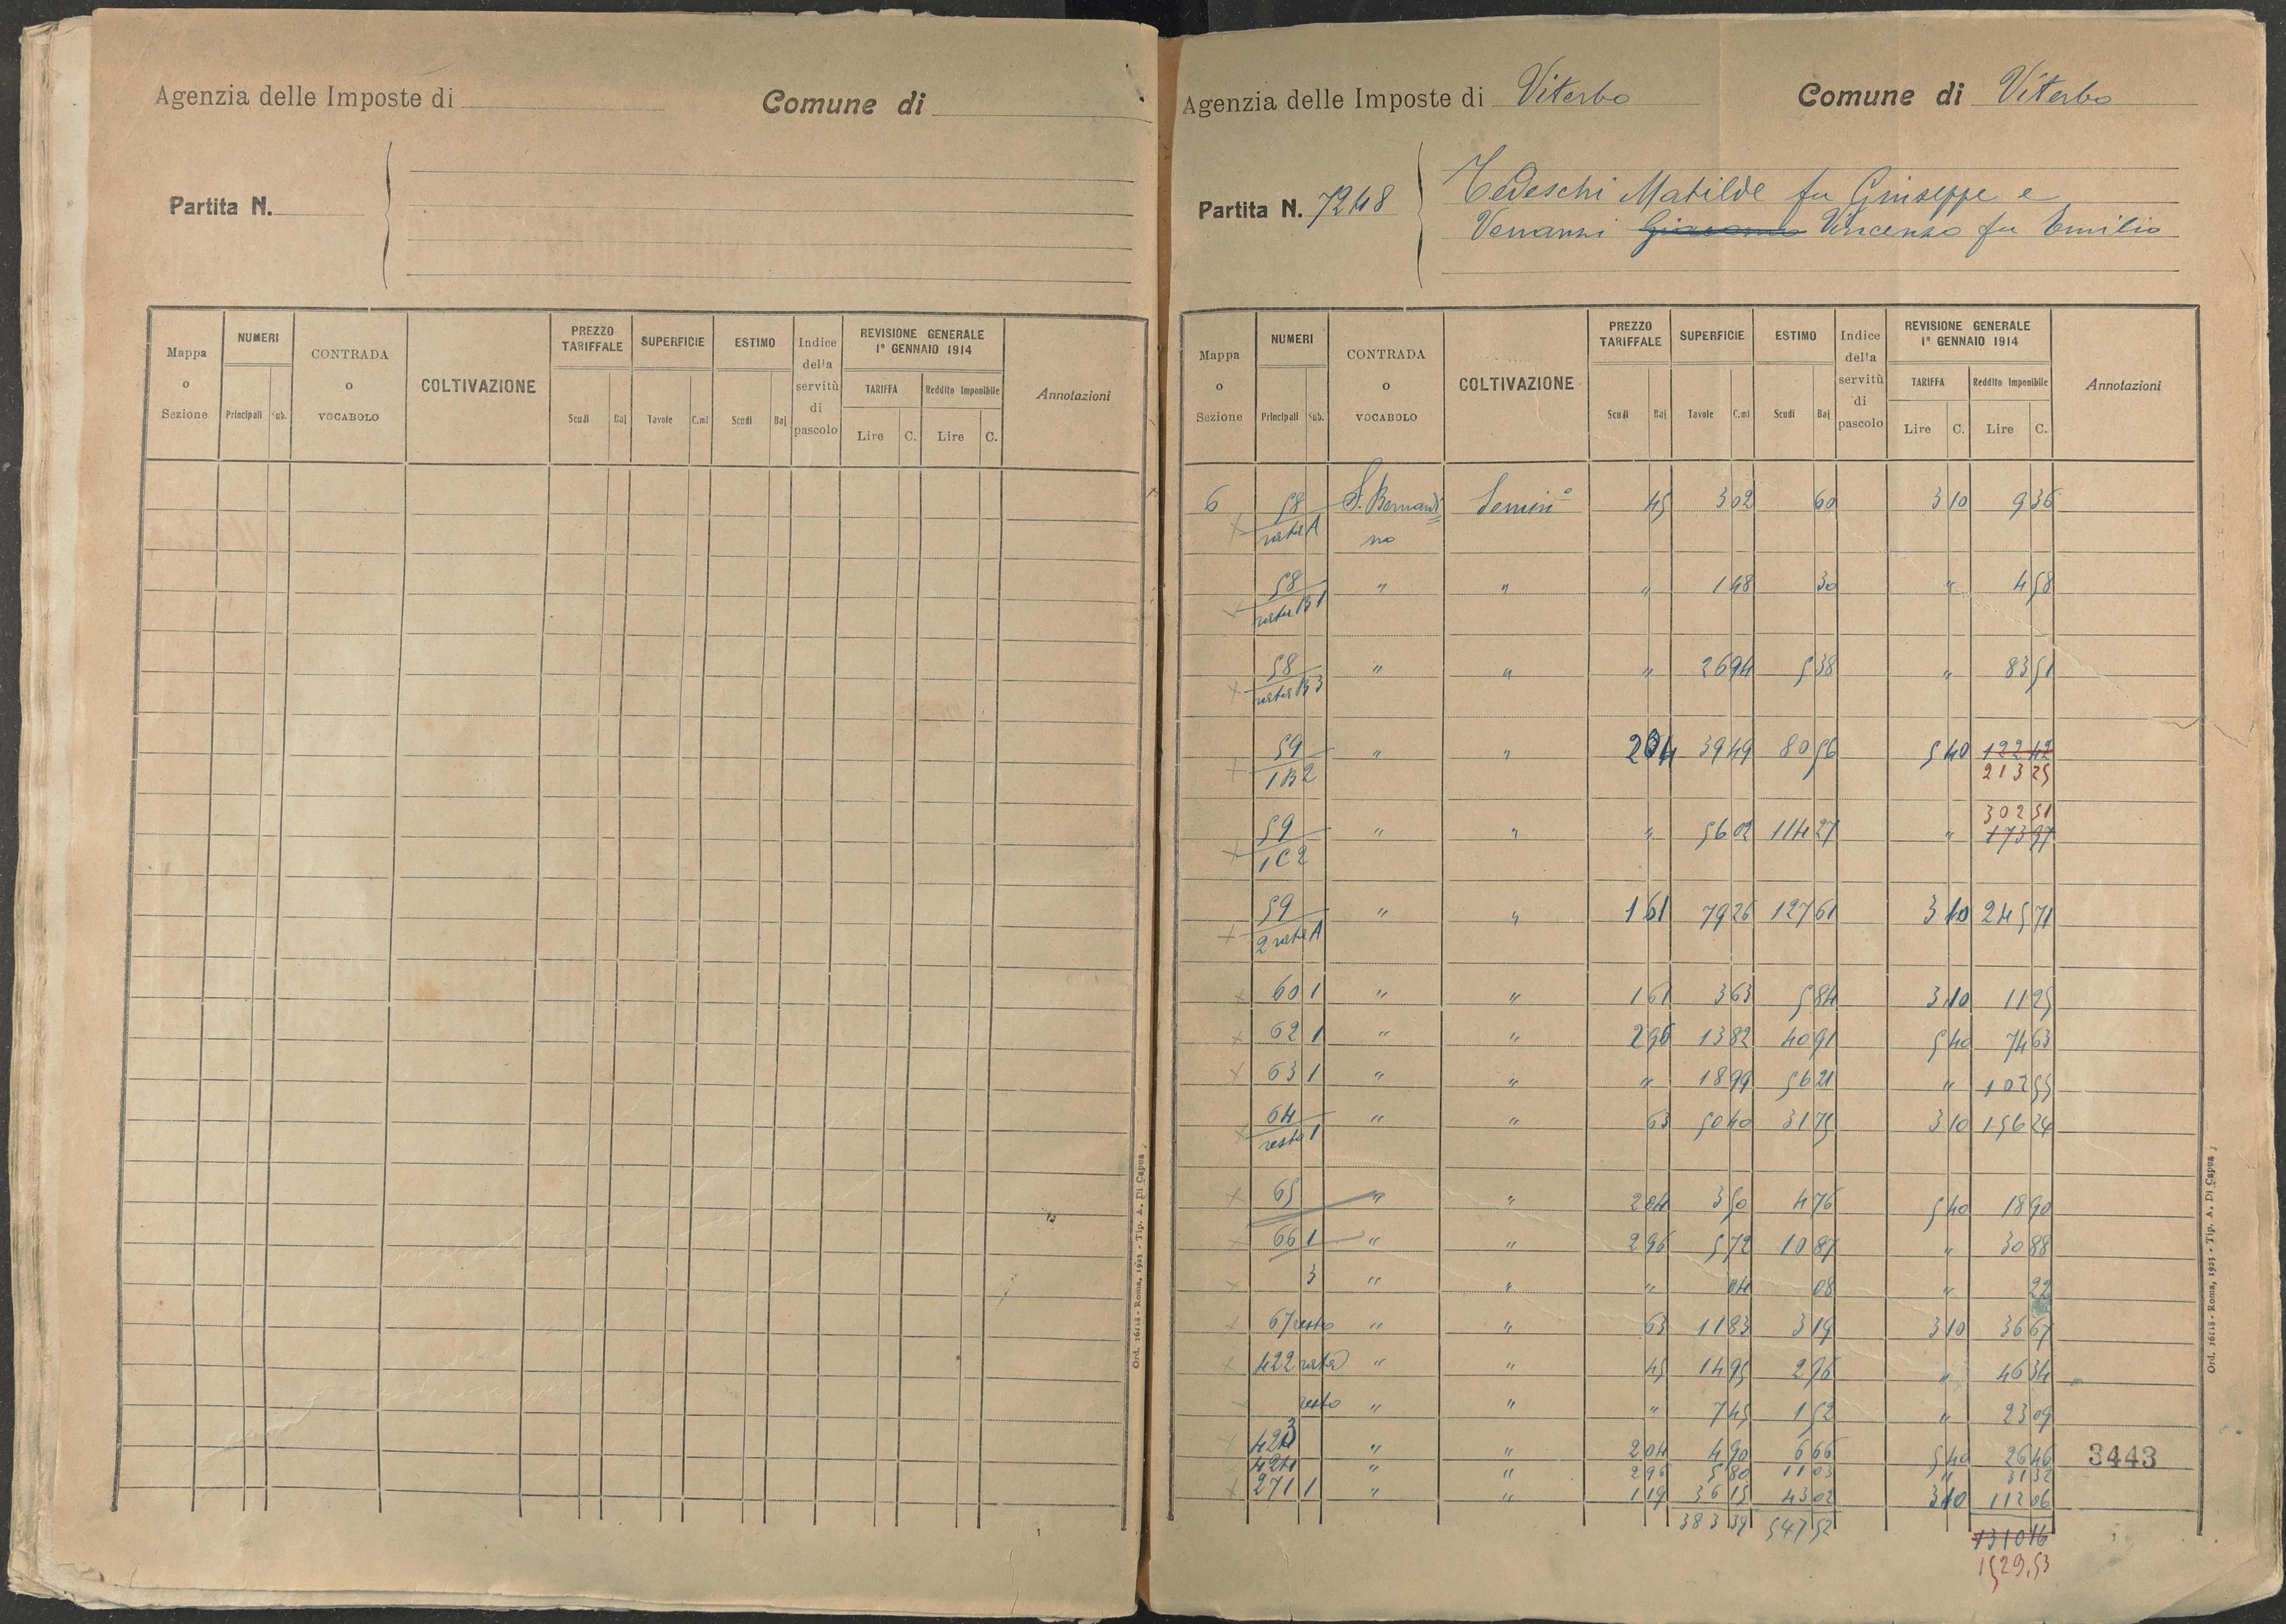 Agenzia delle Imposte di
Comune di
Partita N.
Mappa o Sezione
NUMERI
Principali Sub.
CONTRADA o VOCABOLO
COLTIVAZIONE
PREZZO TARIFFALE
Scudi Baj
SUPERFICIE
Tavole C.mi
ESTIMO
Scudi Baj
Indice della servitù di pascolo
REVISIONE GENERALE 1° GENNAIO 1914
TARIFFA
Lire C.
Reddito Imponibile
Lire C.
Annotazioni
Ord. 16118 - Roma, 1921 - Tip. A. Di Capua
Agenzia delle Imposte di Viterbo
Comune di Viterbo
Partita N. 7248
Tedeschi Matilde fu Giuseppe e
Venanzi Giacomo Vincenzo fu Emilio
Mappa o Sezione
NUMERI
Principali Sub.
CONTRADA o VOCABOLO
COLTIVAZIONE
PREZZO TARIFFALE
Scudi Baj
SUPERFICIE
Tavole C.mi
ESTIMO
Scudi Baj
Indice della servitù di pascolo
REVISIONE GENERALE 1° GENNAIO 1914
TARIFFA
Lire C.
Reddito Imponibile
Lire C.
Annotazioni
6 58 S. Bernardi Semin° 45 3 02 60 3 10 9 36
rata A no
58 " " " 1 48 30 " 4 58
rata B1
58 " " " 26 94 5 38 " 83 51
rata B3
59 " " 2 04 39 49 80 56 5 40 122 42
1B2 213 25
302 51
59 " " " 56 02 114 27 " 173 97
1C2
59 " " 1 61 79 26 127 61 3 10 245 71
2 rata A
60 1 " " 1 61 3 63 5 84 3 10 11 25
62 1 " " 2 96 13 82 40 91 5 40 74 63
63 1 " " " 18 99 56 21 " 102 55
64 " " 63 50 40 31 75 3 10 156 24
resto 1
65 " " 2 04 3 50 4 76 5 40 18 90
66 1 " " 2 96 5 72 10 87 " 30 88
3 " " " 04 08 " 22
67 resto " " 63 11 83 3 19 3 10 36 67
422 rata " " 45 14 95 2 96 " 46 34
resto " " " 7 45 1 52 " 23 09
423 " " 2 04 4 90 6 66 5 40 26 46 3443
424 " " 2 96 5 80 11 03 " 31 32
271 1 " " 1 19 36 15 43 02 3 10 112 06
383 39 547 52
1310 16
1529,53
Ord. 16118 - Roma, 1921 - Tip. A. Di Capua